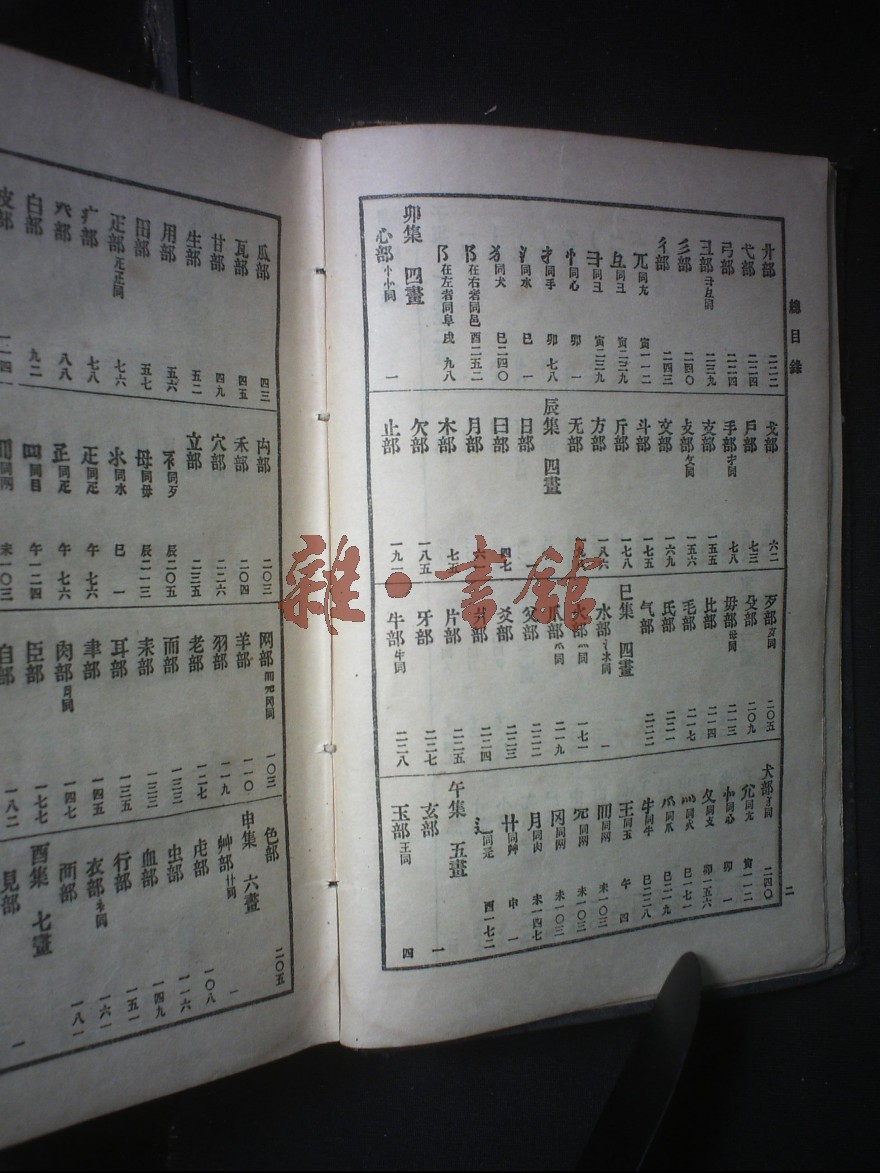 總目錄
二
廾部 二二二
弋部 二二四
弓部 二二四
彐部 彑同 二三九
彡部 二四〇
彳部 二四三
兀同尢 寅一一二
彑同彐 寅二三九
⺕同彐 寅二三九
忄同心 卯一
扌同手 卯七八
氵同水 巳一
犭同犬 巳二四〇
阝在右者同邑 酉二五二
阝在左者同阜 戌九八
卯集 四畫
心部 忄㣺同 一
戈部 六二
戶部 七三
手部 扌同 七八
支部 一五五
攴部 攵同 一五六
文部 一六九
斗部 一七五
斤部 一七八
方部 一八六
无部
辰集 四畫
日部 一
曰部 四七
月部
木部 七五
欠部 一八五
止部 一九一
歹部 歺同 二〇五
殳部 二〇九
毋部 母同 二一三
比部 二一四
毛部 二一七
氏部 二二一
气部 二二二
巳集 四畫
水部 氵氺同 一
火部 灬同 一七一
爪部 爫同 二一九
父部 二二二
爻部 二二三
爿部 二二四
片部 二二五
牙部 二二七
牛部 牜同 二二八
犬部 犭同 二四〇
尣同尢 寅一一二
㣺同心 卯一
攵同攴 卯一五六
灬同火 巳一七一
爫同爪 巳二一九
牜同牛 巳二二八
王同玉 午四
罒同网 未一〇三
同网 未一〇三
同网 未一〇三
月同肉 未一四七
艹同艸 申一
辶同辵 酉一七二
午集 五畫
玄部 一
玉部 王同 四
瓜部 四三
瓦部 四五
甘部 四九
生部 五二
用部 五六
田部 五七
疋部 七六
疒部 七八
癶部 八八
白部 九二
皮部
禸部 二〇三
禾部 二〇四
穴部 二二六
立部 二三五
歺同歹 辰二〇五
母同毋 辰二一三
氺同水 巳一
同疋 午七六
同疋 午七六
罒同目 午一二四
同网 未一〇三
网部 一〇三
羊部 一一〇
羽部 一一九
老部 一二七
而部 一三三
耒部 一三三
耳部 一三五
聿部 一四五
肉部 月同 一四七
臣部 一七七
自部 一八二
色部 二〇五
申集 六畫
艸部 艹同 一
虍部 一〇八
虫部 一一六
血部 一四九
行部 一五一
衣部 衤同 一六一
襾部 一八一
酉集 七畫
見部 一
雜·書館